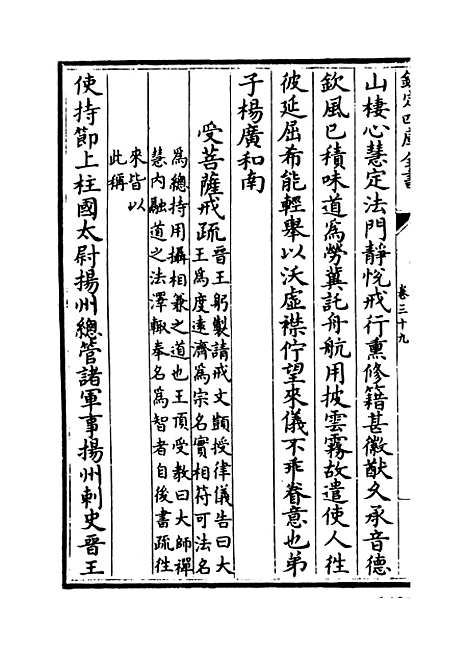 欽定四庫全書
卷三十九
山棲心慧定法門靜悅戒行熏修籍甚徽猷久承音德
欽風已積味道為勞冀託舟航用披雲霧故遣使人往
彼延屈希能輕舉以沃虛襟佇望來儀不乖眷意也弟
子楊廣和南
受菩薩戒疏
晉王躬製請戒文顗授律儀告曰大
王為度遠濟為宗名實相符可法名
為總持用攝相兼之道也王頂受教曰大師禪
慧內融道之法澤輙奉名為智者自後書疏往
來皆以
此稱
使持節上柱國太尉揚州總管諸軍事揚州刺史晉王